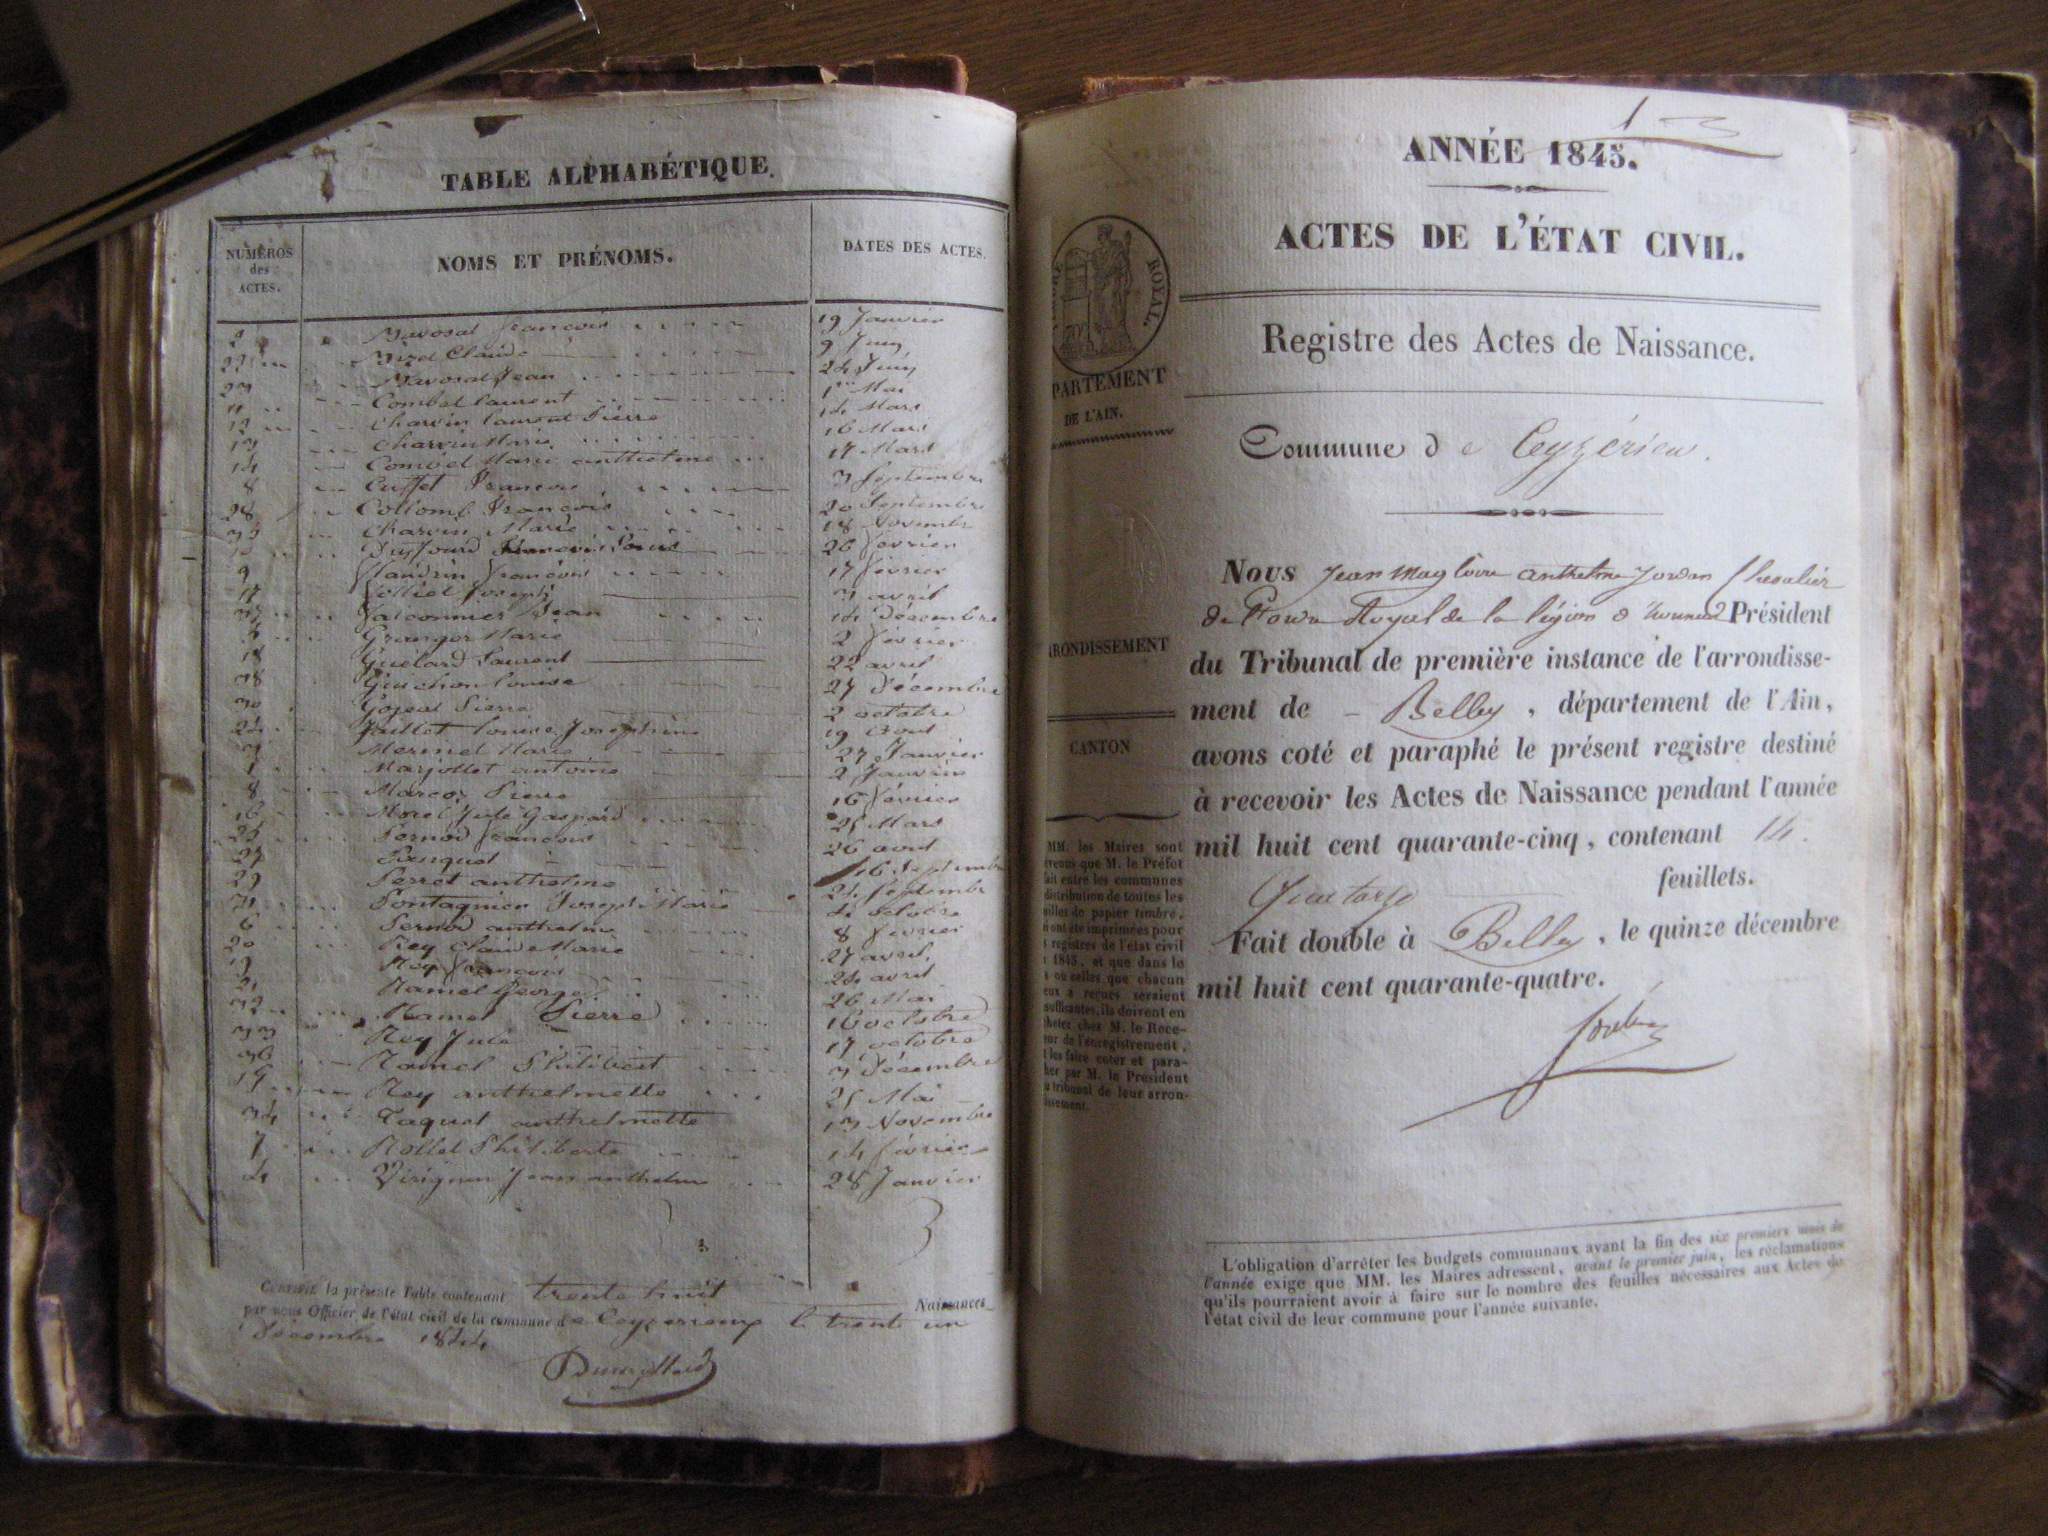 TABLE ALPHABÉTIQUE.
NUMÉROS
des
ACTES.
NOMS ET PRÉNOMS.
DATES DES ACTES.
2 François 19 Janvier
Claude 9 Juin
Jean 24 Juin
11 Combet laurent 1er Mai
12 Charvin laurent Pierre 14 Mars
13 Charvin Marie 16 Mars
14 Combet Marie anthelme 17 Mars
Cuffet François 3 Septembre
28 Collomb François 20 Septembre
Charvin Marie 18 Novembre
François Louis 26 février
9 François 17 février
Joseph 3 avril
Falconnier Jean 14 Décembre
5 Granger Marie 2 février
18 Guélard Laurent 22 avril
38 Guichon louise 27 Décembre
30 Pierre 2 octobre
24 Juillet louise Josephine 19 Aout
3 Mermet Marie 27 Janvier
1 Marjollet antoine 2 Janvier
8 Marcoz Pierre 16 février
16 Morel Julie Gaspard 25 Mars
25 Pernod François 26 aout
27 16 Septembre
29 Perret anthelme 24 Septembre
31 Pontagnier Joseph Marie 4 Octobre
6 Pernod anthelme 8 février
20 Rey Claude Marie 27 avril
19 Rey François 24 avril
21 Ramel George 26 Mai
32 Ramel Pierre 16 octobre
33 Rey Julie 17 octobre
36 Ramel Philibert 3 Décembre
Rey anthelmette 25 Mai
34 Taquet anthelmette 13 Novembre
7 Rollet Philiberte 14 février
4 Jean anthelme 28 Janvier
CERTIFIÉ la présente Table contenant trente huit Naissances
par nous Officier de l'état civil de la commune de Ceyzerieux le trente un
Décembre 1844
ANNÉE 1845.
1
ACTES DE L'ÉTAT CIVIL.
TIMBRE ROYAL.
Registre des Actes de Naissance.
PARTEMENT
DE L'AIN.
Commune de Ceyzérieu.
Nous Jean Magloire anthelme Jordan Chevalier
de l'ordre Royal de la légion d'honneur Président
RRONDISSEMENT
du Tribunal de première instance de l'arrondisse-
ment de Belley, département de l'Ain,
CANTON
avons coté et paraphé le présent registre destiné
à recevoir les Actes de Naissance pendant l'année
mil huit cent quarante-cinq, contenant 14.
Quatorze feuillets.
Fait double à Belley, le quinze décembre
mil huit cent quarante-quatre.
MM. les Maires sont
que M. le Préfet
ait entre les communes
distribution de toutes les
illes de papier timbré,
ont été imprimées pour
registres de l'état civil
1845, et que dans le
où celles que chacun
eux a reçues seraient
suffisantes, ils doivent en
cheter chez M. le Rece-
eur de l'enregistrement,
les faire coter et para-
her par M. le Président
u tribunal de leur arron-
issement.
L'obligation d'arrêter les budgets communaux avant la fin des six premiers mois de
l'année exige que MM. les Maires adressent, avant le premier juin, les réclamations
qu'ils pourraient avoir à faire sur le nombre des feuilles nécessaires aux Actes de
l'état civil de leur commune pour l'année suivante.